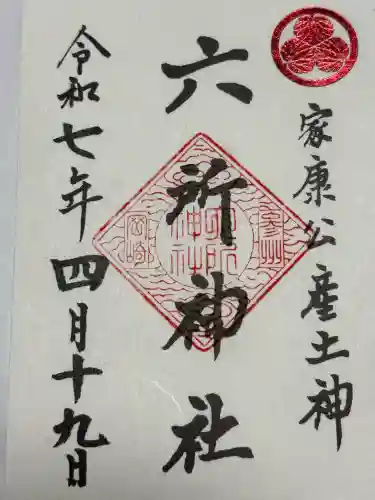 家康公産土神
六所神社
令和七年四月十九日
参州
六所
神社
岡崎